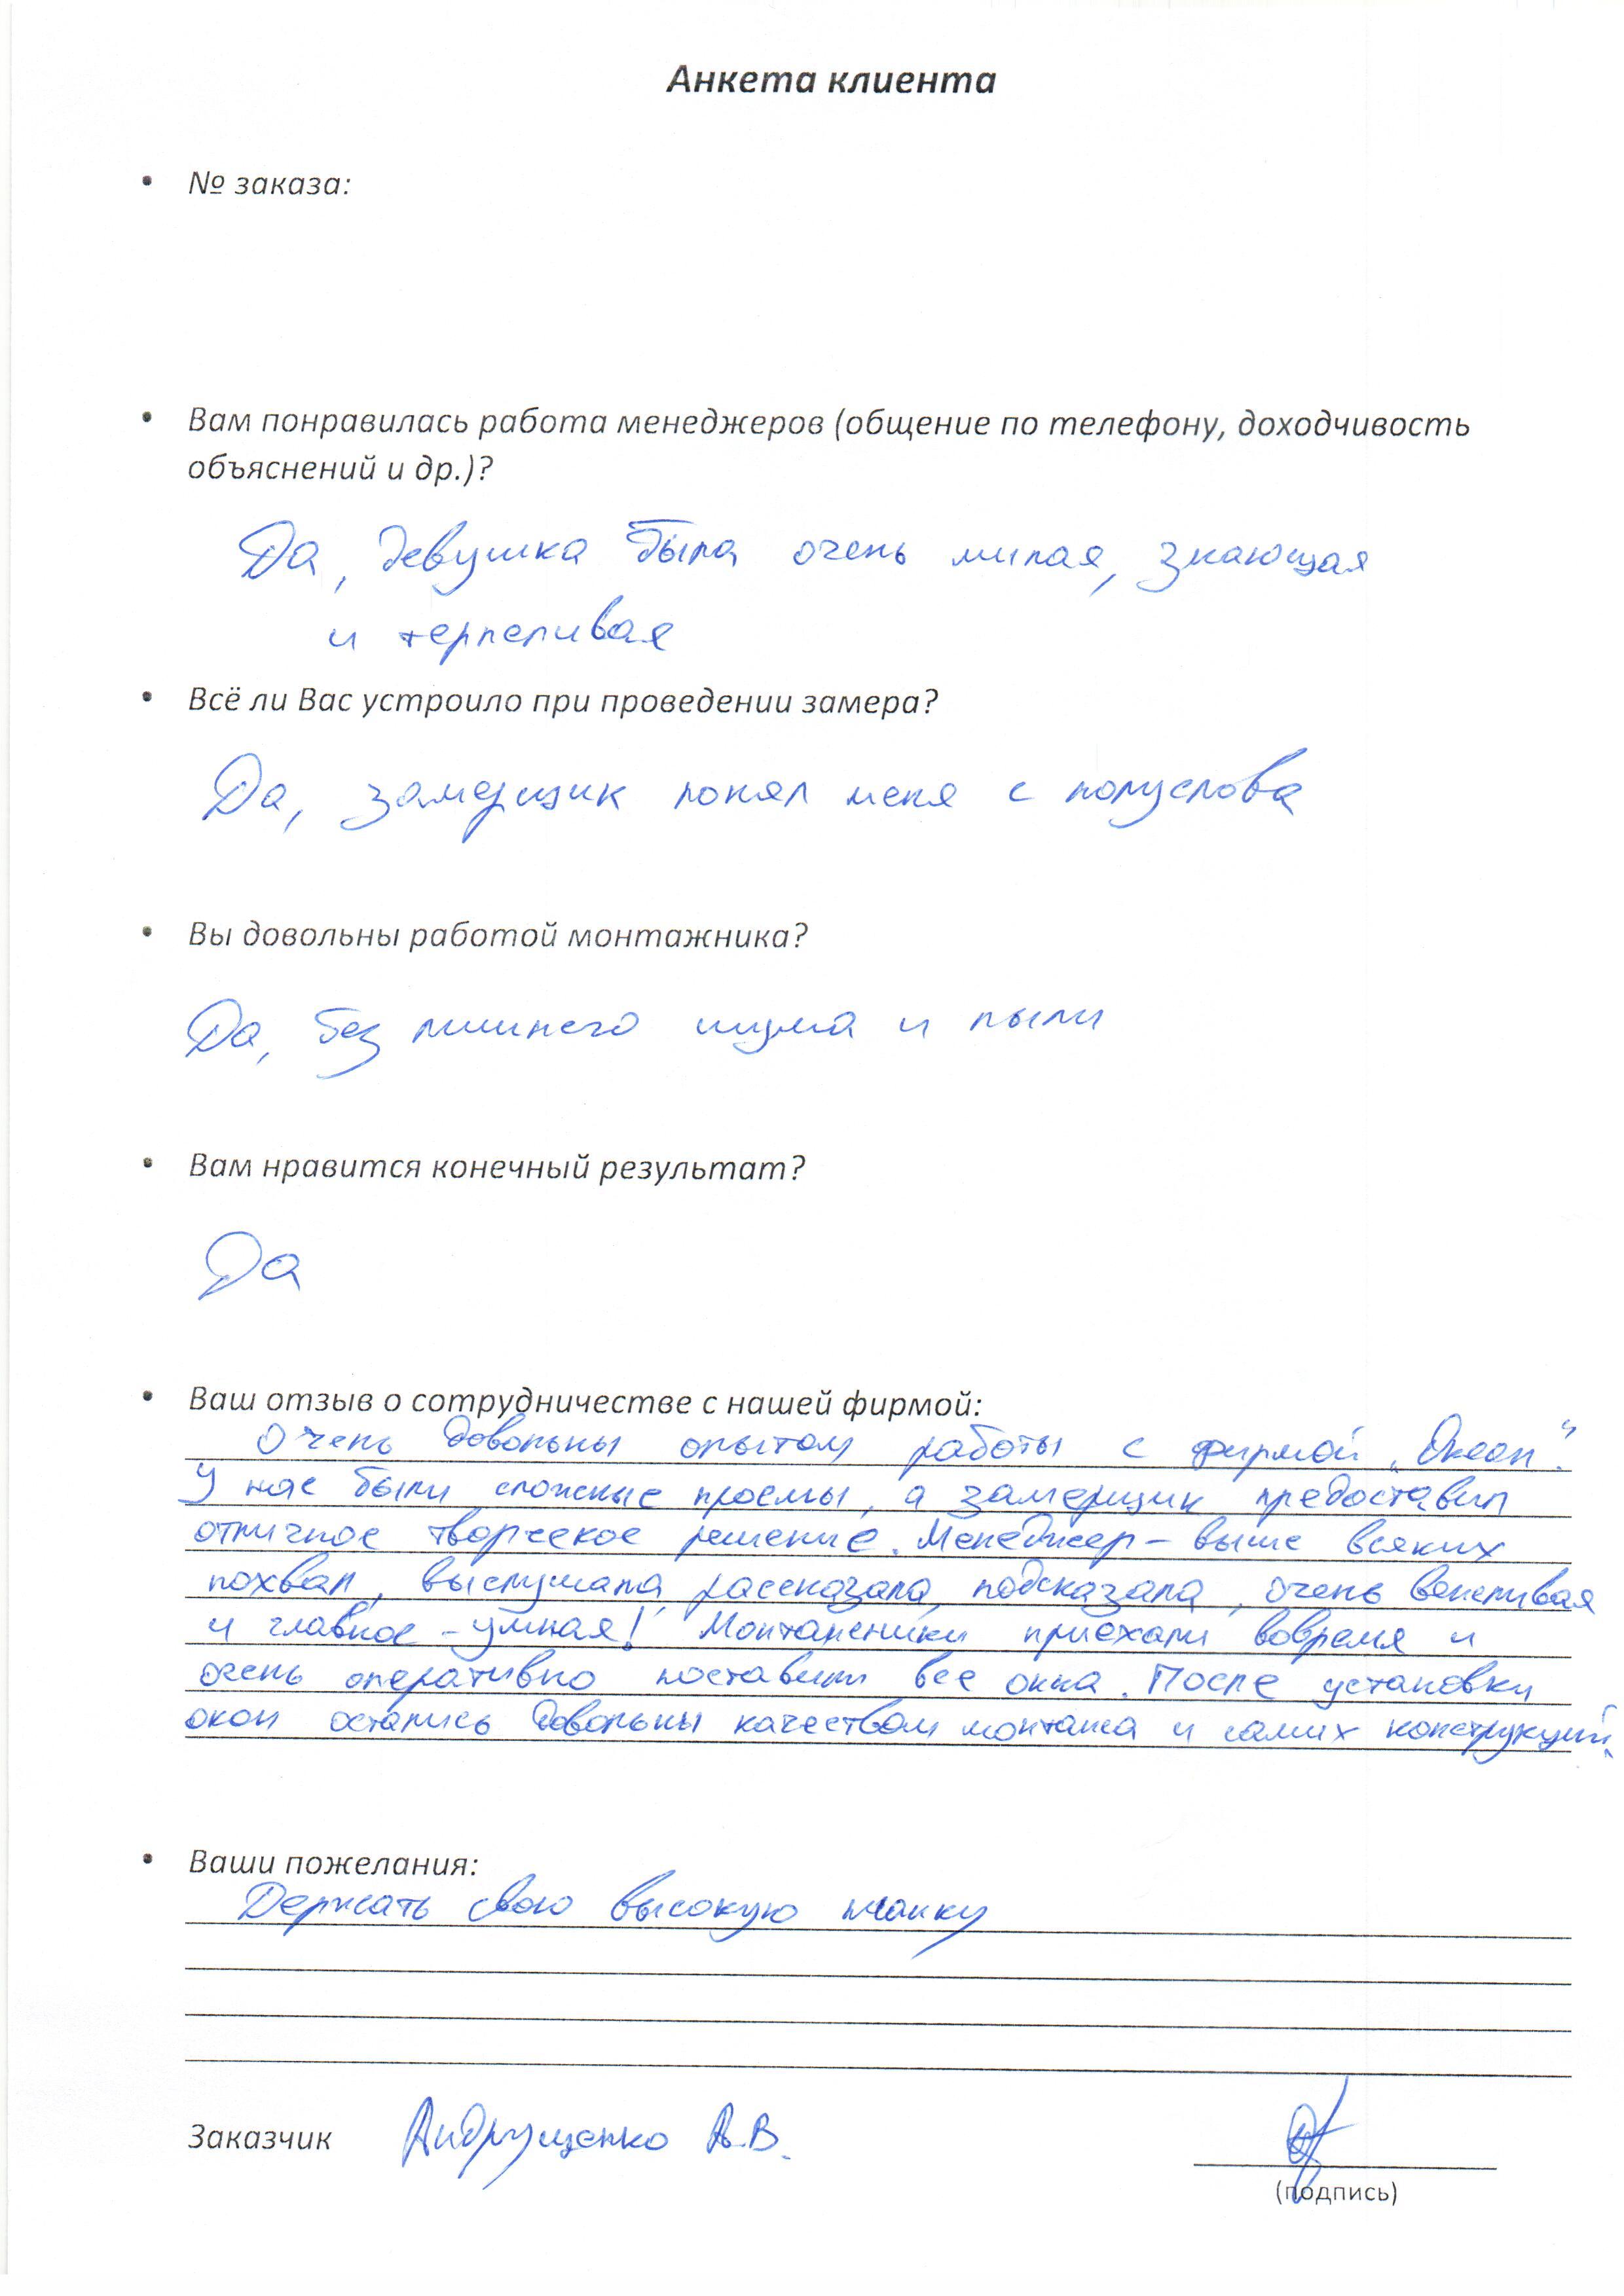 Анкета клиента
• № заказа:
• Вам понравилась работа менеджеров (общение по телефону, доходчивость
объяснений и др.)?
Да, девушка была очень милая, знающая
и терпеливая
• Всё ли Вас устроило при проведении замера?
Да, замерщик понял меня с полуслова
• Вы довольны работой монтажника?
Да, без лишнего шума и пыли
• Вам нравится конечный результат?
Да
• Ваш отзыв о сотрудничестве с нашей фирмой:
Очень довольны опытом работы с фирмой „Океан“.
У нас были сложные проемы, а замерщик предоставил
отличное творческое решение. Менеджер – выше всяких
похвал, выслушала, рассказала, подсказала, очень вежливая
и главное – умная! Монтажники приехали вовремя и
очень оперативно поставили все окна. После установки
окон остались довольны качеством монтажа и самих конструкций.
• Ваши пожелания:
Держать свою высокую планку
Заказчик Андрущенко А.В.
(подпись)